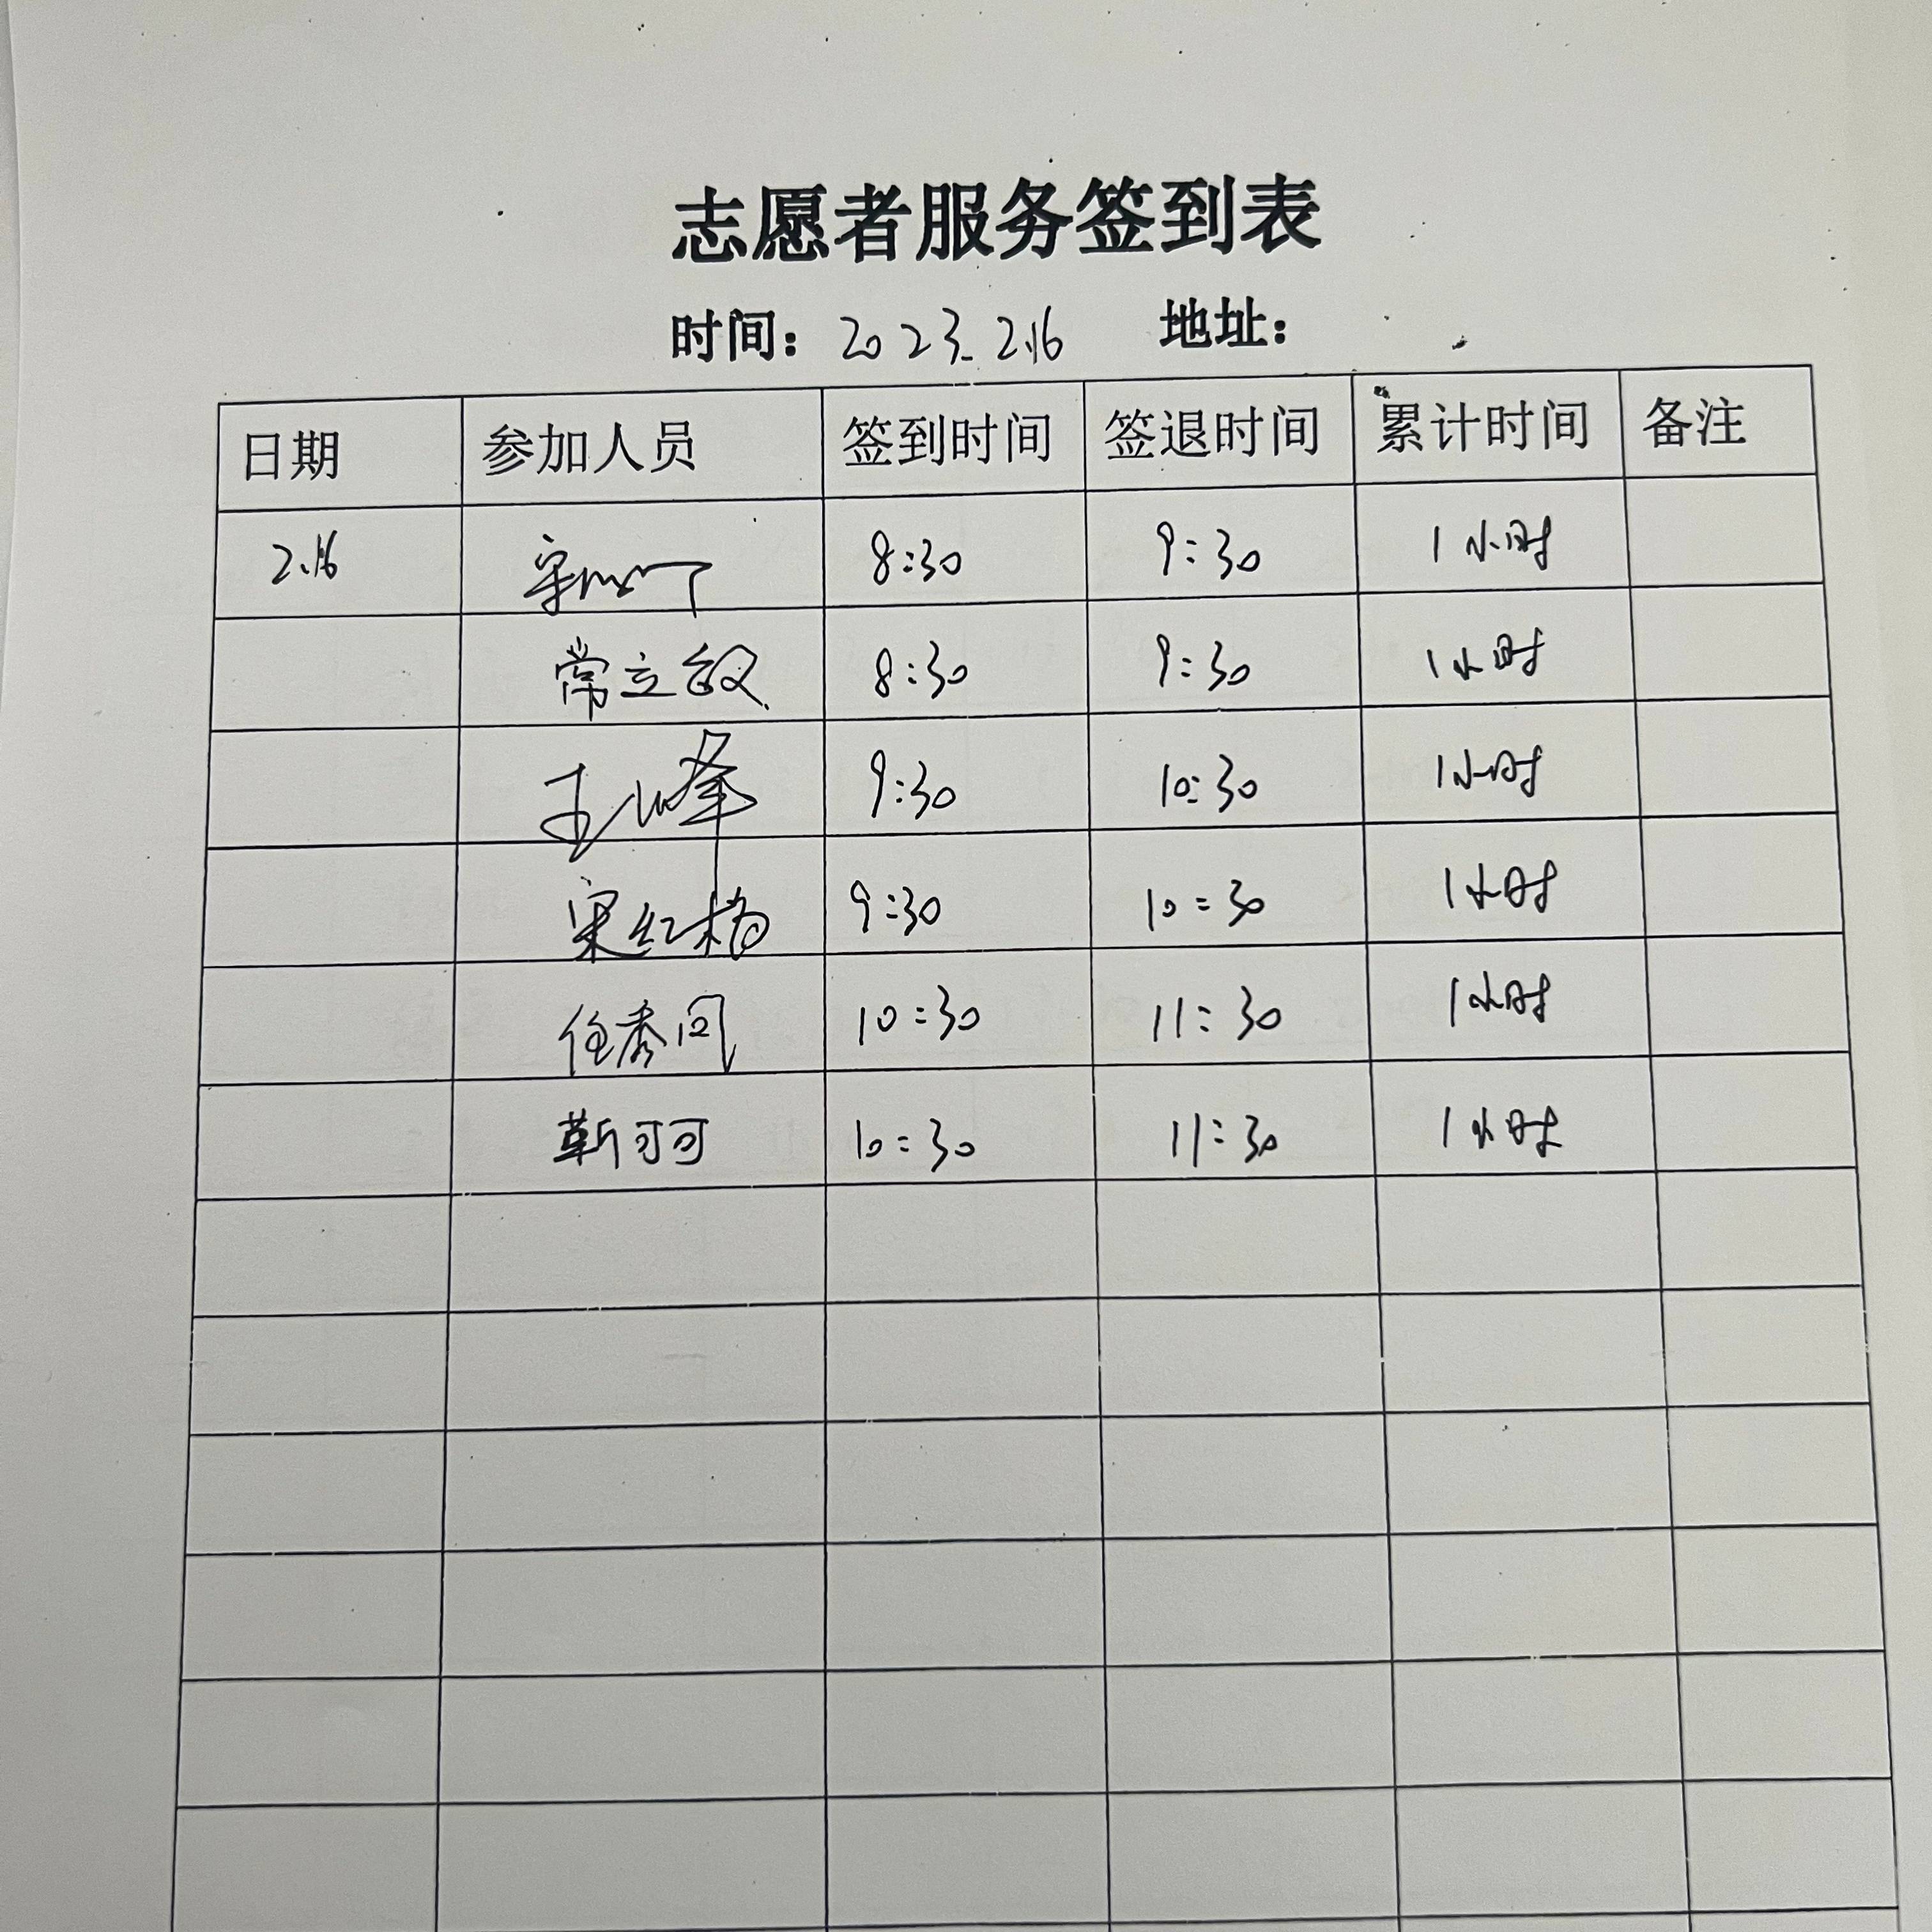 志愿者服务签到表
时间：2023.2.16 地址：
日期 参加人员 签到时间 签退时间 累计时间 备注
2.16 8:30 9:30 1小时
常立敏 8:30 9:30 1小时
王峰 9:30 10:30 1小时
宋红梅 9:30 10:30 1小时
任秀 10:30 11:30 1小时
靳可可 10:30 11:30 1小时